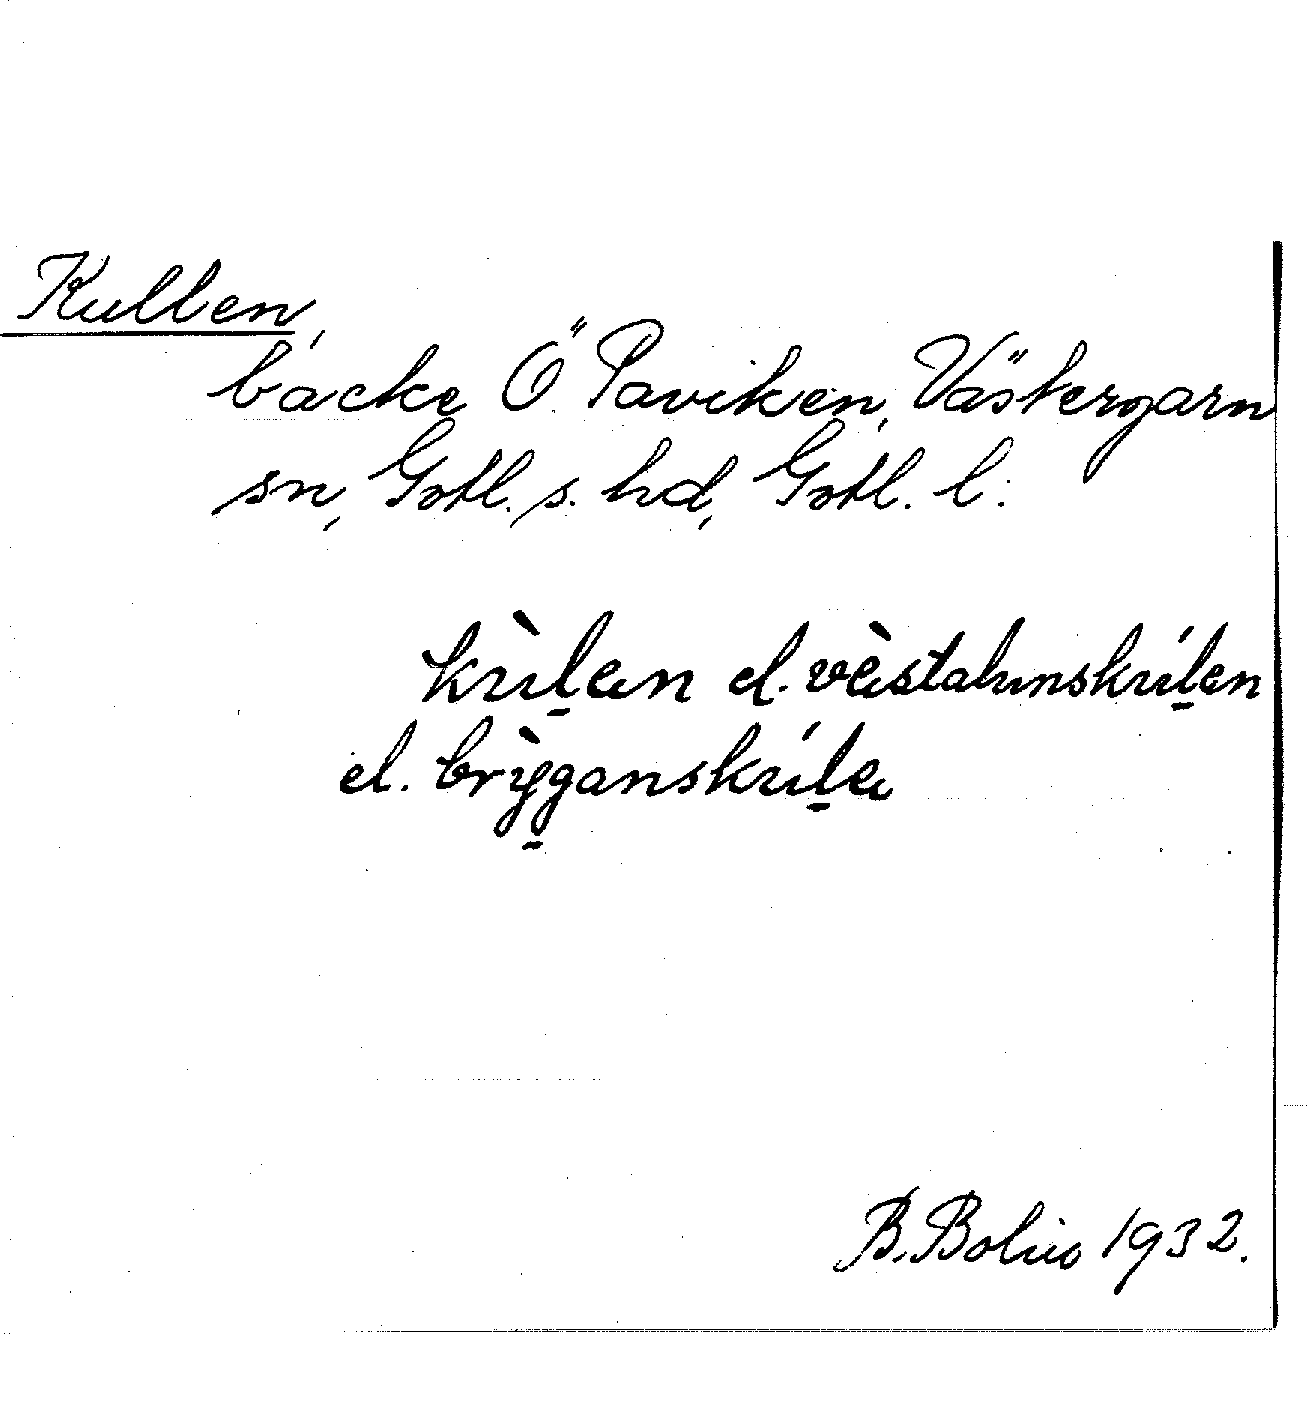 Kullen,
backe Ö Paviken, Västergarn
sn, Gotl. s. hd, Gotl. l.
kùlen el. vèstalunskúlen
el. brỳganskúla
B. Bolin 1932.